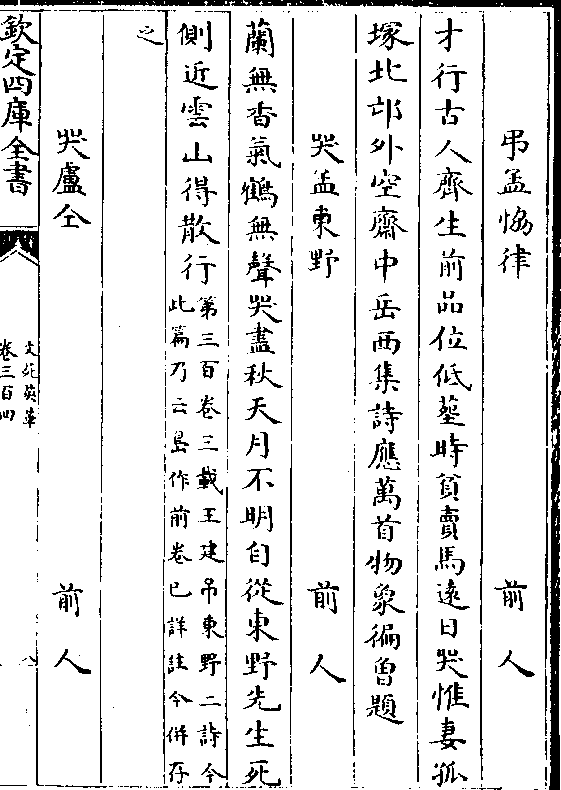 弔孟恊律　前人
才行古人齊生前品位低塟時貧賣馬逺日哭惟妻孤
塚北邙外空齋中岳西集詩應萬首物象徧曽題
哭孟東野　前人
蘭無香氣鶴無聲哭盡秋天月不明自從東野先生死
側近雲山得散行第三百卷三載王建吊東野二詩今
此篇乃云島作前卷已詳註今併存
之
哭盧仝　前人
欽定四庫全書
文苑英華
卷三百四
八